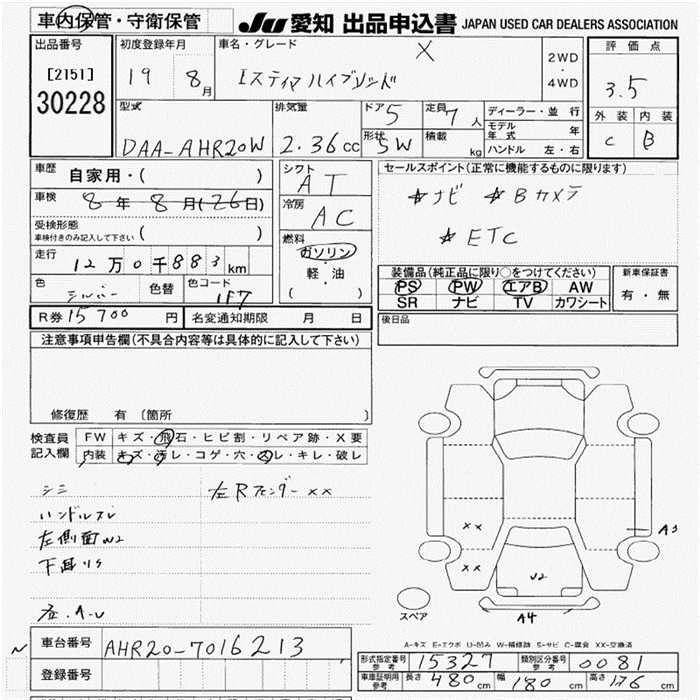 車内保管・守衛保管
JU 愛知 出品申込書 JAPAN USED CAR DEALERS ASSOCIATION
出品番号
[2151]
30228
初度登録年月
19 8月
車名・グレード
X
エスティマ ハイブリッド
2WD
・
4WD
評価点
3.5
外装 内装
C B
型式
DAA-AHR20W
排気量
2.36cc
ドア 5
形状 5W
定員 7人
積載 kg
ディーラー・並行
モデル年式 年
ハンドル 左・右
車歴 自家用・( )
車検 8年8月(26日)
受検形態
車検付きのみ記入して下さい ( )
走行 12万0千883km
色 シルバー 色替 色コード 1F7
R券 15700円 名変通知期限 月 日
シフト AT
冷房 AC
燃料
ガソリン
軽・油
( )
セールスポイント(正常に機能するものに限ります)
☆ナビ ☆Bカメラ
☆ETC
装備品(純正品に限り○をつけてください)
PS PW エアB AW
SR ナビ TV カワシート
新車保証書
有・無
後日品
注意事項申告欄(不具合内容等は具体的に記入して下さい)
修復歴 有 〔箇所 〕
検査員記入欄
FW キズ・飛石・ヒビ割・リペア跡・X要
内装 キズ・汚レ・コゲ・穴・スレ・キレ・破レ
シミ
ハンドルスレ
左側面W2
下廻リS
左.A.U
左Rフェンダー××
××
××
U2
A3
A4
スペア
A-キズ E-エクボ U-凹み W-補修跡 S-サビ C-腐食 XX-交換済
車台番号 AHR20-7016213
登録番号
型式指定番号 参考 15327
類別区分番号 参考 0081
車庫証明用 参考 長さ 480cm 幅 180cm 高さ 176cm